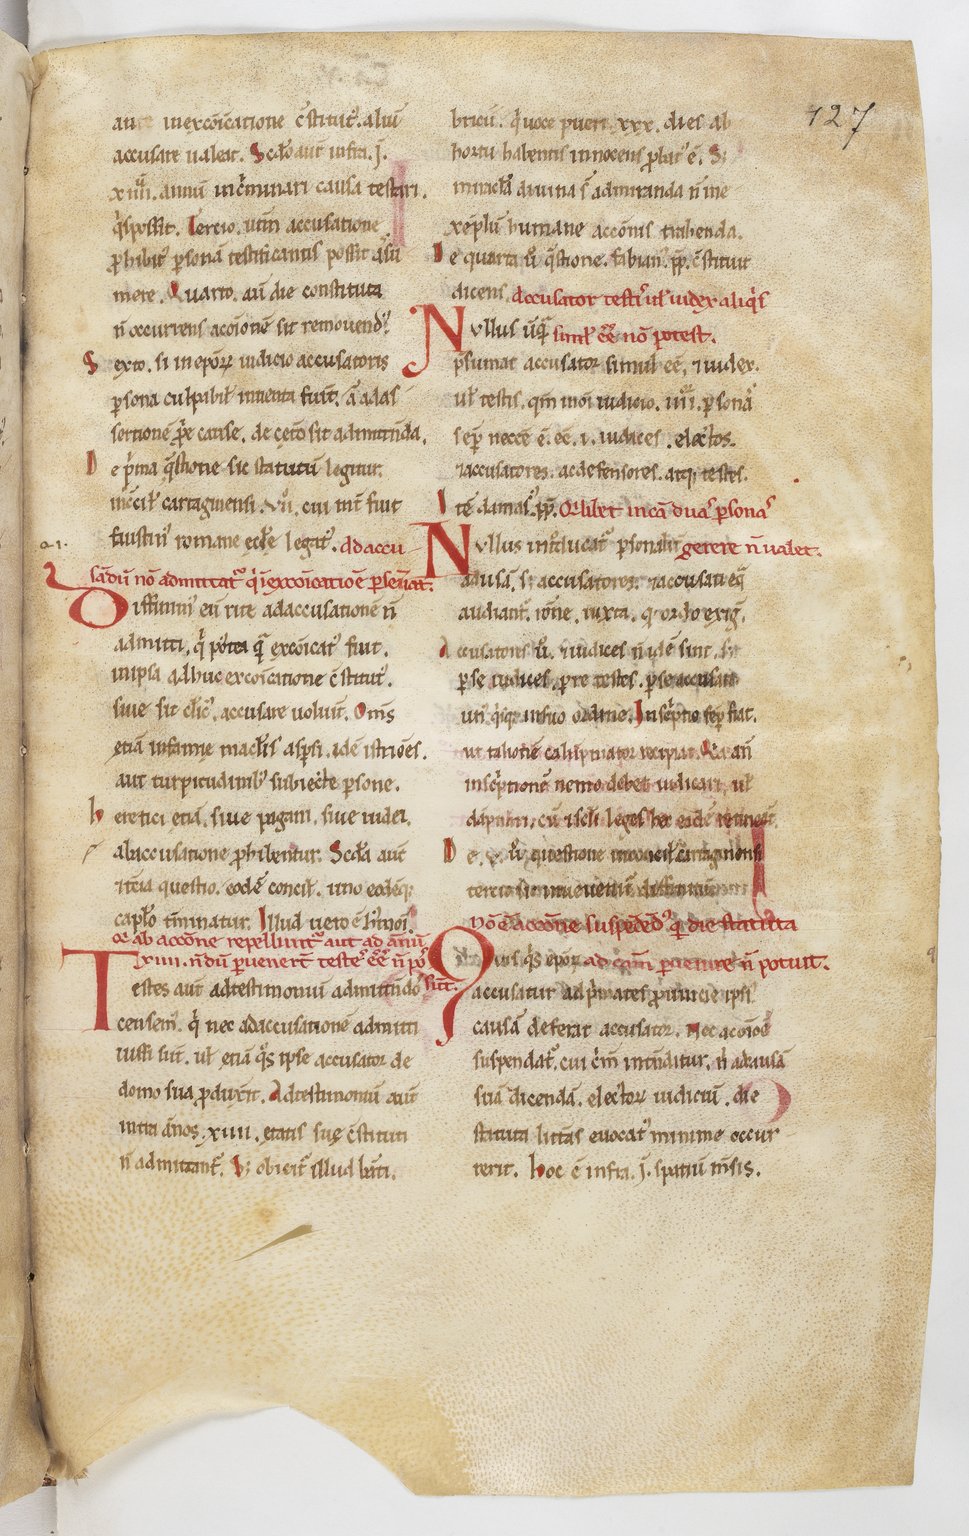 127
aut inexcōicatione ꝯstitut᷒. aliū
accusare ualeat. Scd̄o aut infra. j.
xiiii. annū incͥminari causa testari.
qͥs possit. Tercio. utrū accusatione
ꝓhibit᷒ ꝑsonā testificantis possit assū
mere. Quarto. an̄ die constituta
n̄ occurrens accōione sit remouend᷒.
Sexto. si in ep̄orꝝ iudicio accusatoris
ꝑsona culpabil̄ inuenta fuīt. an̄ ad as
sertionē ꝓpͥe cause. de cet̄o sit admittenda.
De pͥma q̄stione sic statutū legitur.
in cōcil̄ cartaginensi .vii. cui int̄ fuit
faustin᷒ romane eccl̄e legat᷒. Ad accu
sādū nō admittat᷒ qͥ in excōicatiōe ꝑseuerat.
Diffinim᷒ eū rite ad accusationē n̄
admitti, qͥ postea qͣ excōicat᷒ fuit.
in ipsa adhuc excōicatione ꝯstitut᷒.
siue sit cl̄ic᷒, accusare uoluīt. Om̄s
etiā infamie maculis aspsi. idē istriōes.
aut turpitudinib᷒ subiecte ꝑsone.
heretici etiā. siue pagani. siue iudei.
ab accusatione ꝓhibentur. Scd̄a aut
⁊ t̄cia questio. eodē concil̄. uno eodēq;
capl̄o t̄minatur. Illud uero ē hͥmōi.
Qͥ ab accōne repellunt᷒ aut ad annū
xiiii. n̄dū ꝑuener̄t testes eē n̄ pos
sūt.
Testes aut ad testimoniū admittendos
censem᷒. qͥ nec ad accusationē admitti
iussi sūt. ul̄ etiā qͦs ipse accusator de
domo sua ꝓduxerit. Ad testimoniū aut
intra ānos .xiiii. etatis suę ꝯstituti
n̄ admittant᷒. S; obicit᷒ illud b̄ti.
bricii. qͥ uoce pueri .xxx. dies ab
hortu habentis innocens ꝓbat᷒ ē. S;
miracl̄a diuina s̄ admiranda n̄ in e
xēplū humane accōnis trahenda.
De quarta u᷒ q̄stione. fabian᷒ pp̄. ꝯstituit
dicens. Accusator testis ul̄ iudex aliqͥs
simul eē nō potest.
Nullus ūqͣ
p̄sumat accusator simul eē, ⁊ iudex.
ul̄ testis. qm̄ in oī iudicio. iiii. ꝑsonas
semp̄ necc̄e ē. eē. i. iudices. electos.
⁊ accusatores. ac defensores. atq; testes.
Itē damas᷒. pp̄. Qͥlibet in cā duas ꝑsonas
gerere n̄ ualet.
Nullus introducat᷒ ꝑsonalit᷒
ad causā. s; accusatores. ⁊ accusati eq̄
audiant᷒. iōne. iuxta. qd ordo exigͥt.
Accusatoris u᷒. ⁊ iudices n̄ idē sint. s;
ꝑ se iudices. ꝑ se testes. ꝑ se accusati
un᷒ qͥsq; in suo ordine. Inscͥptio semp̄ fiat.
ut talionē calūpniator recipiat. Qͥa an̄
inscͥptionē nemo debet iudicari. ul̄
dāpnari, cū ⁊ scl̄i leges hec eadē retineāt.
De .v. u᷒ questione in concil̄ cartaginensi
tercio sic inuenitur diffinitum
Nō ē accōne suspēdēd᷒ qͥ die statuta
ad cām ꝑuenire n̄ potuit.
Quis qͥs ep̄orꝝ
accusatur ad pͥmates ꝓuincie ipsi᷒
causā deferat accusator. Nec accōne
suspendat᷒. cui cͥm̄ intēditur. n̄ ad causā
suā dicendā. electorꝝ iudiciū. die
statuta litt̄as euocat᷒ minime occur
rerit. hoc ē infra. j. spatiū m̄sis.